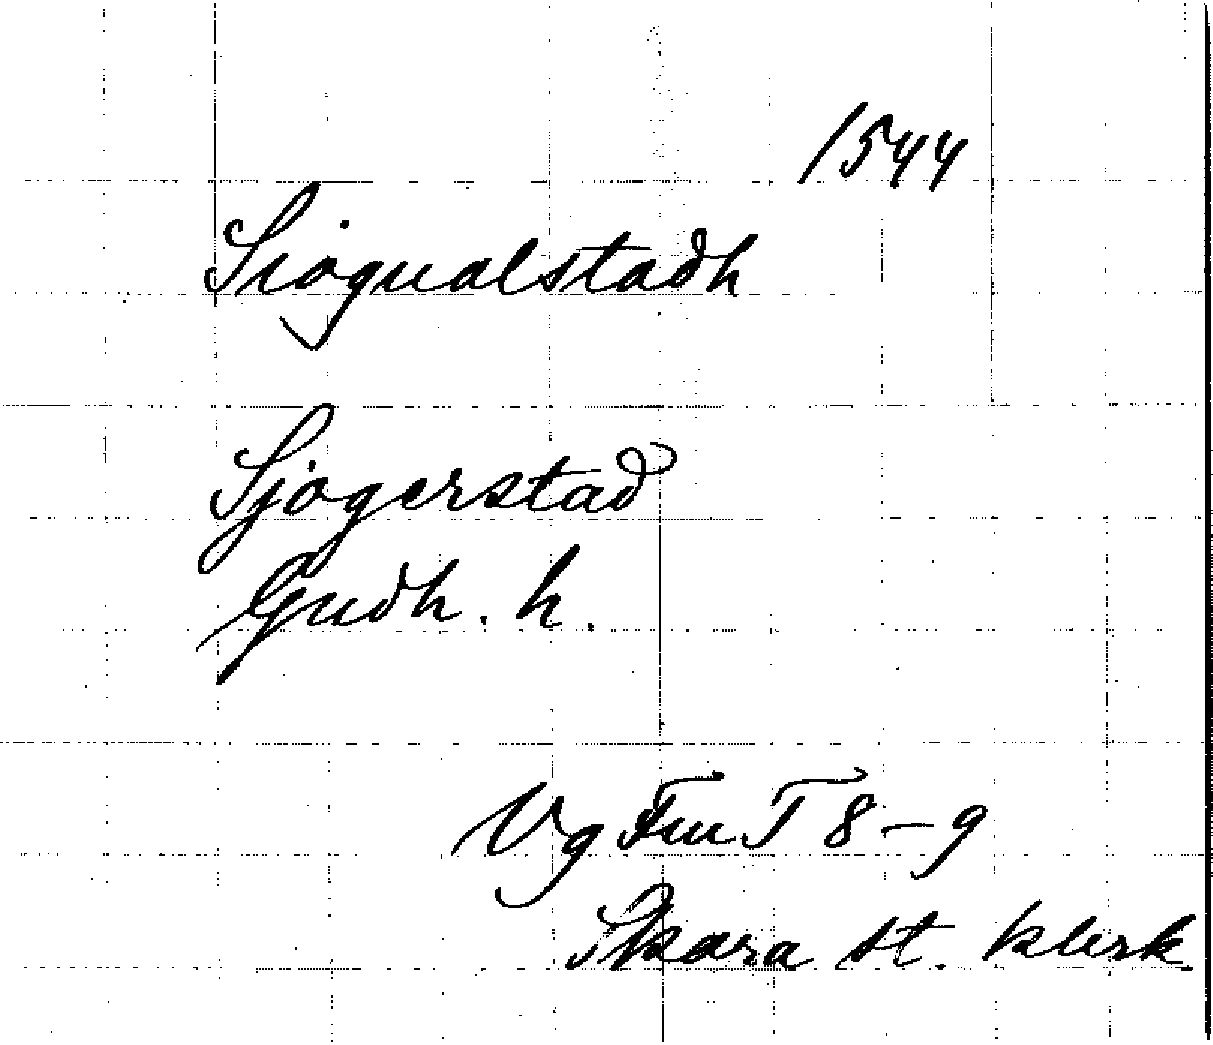 1544
Siogualstadh
Sjogerstad
Gudh. h.
Vg FmT 8-9
Skara st. klerk.